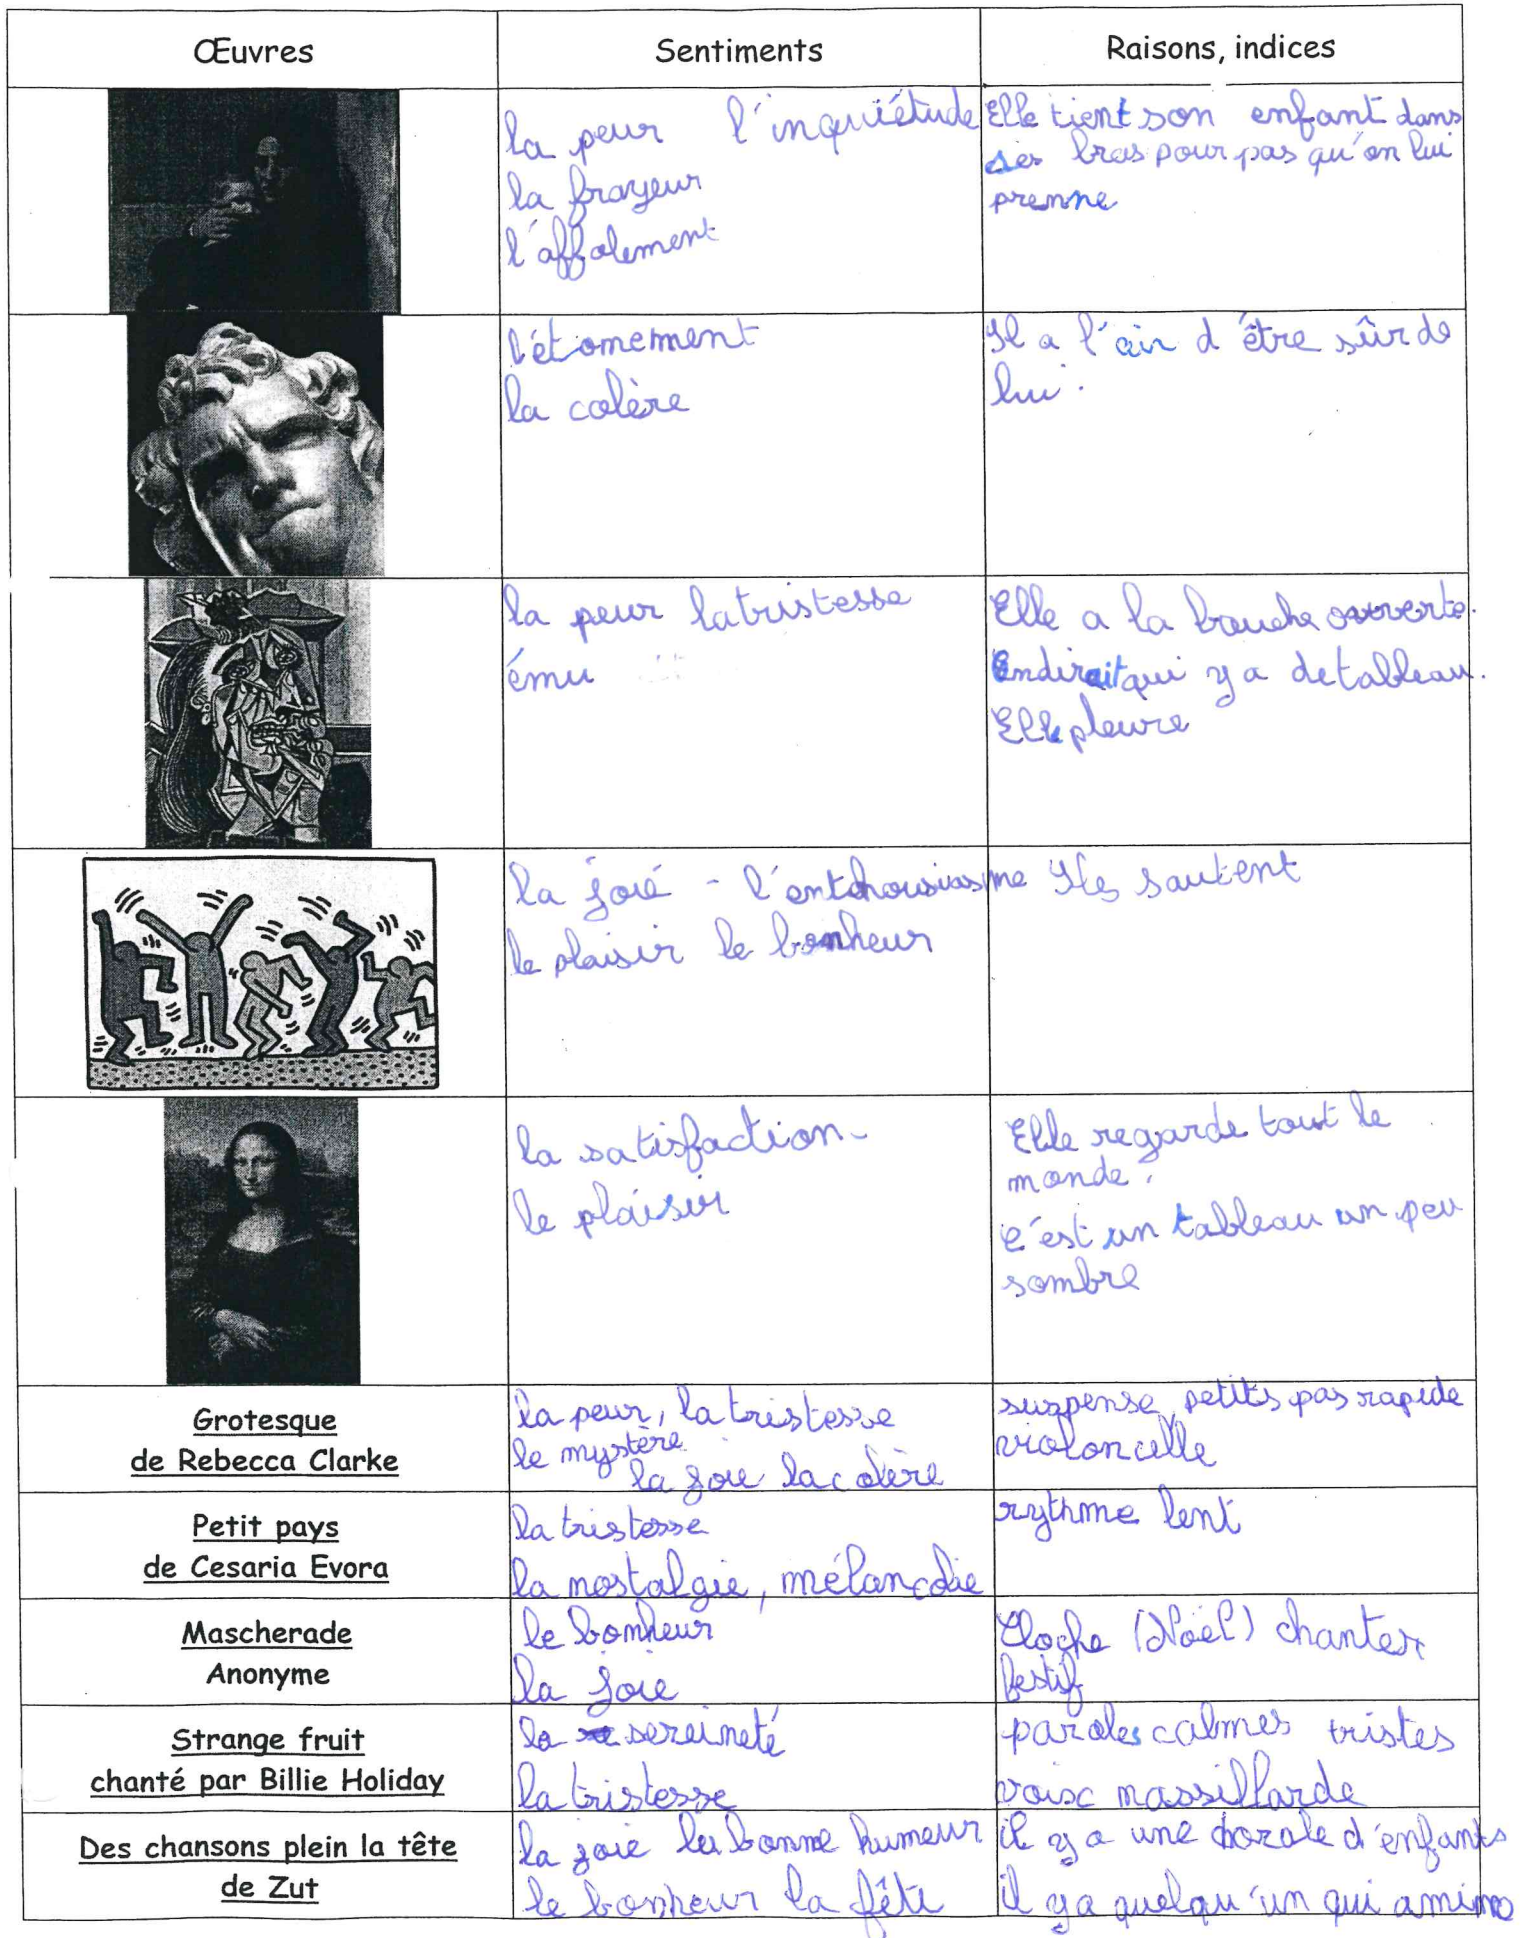 Œuvres Sentiments Raisons, indices
la peur l'inquiétude
la frayeur
l'affolement
Elle tient son enfant dans
ses bras pour pas qu'on lui
prenne
l'étonnement
la colère
Il a l'air d'être sûr de
lui.
la peur la tristesse
ému
Elle a la bouche ouverte.
Endirait qui y a de tableau.
Elle pleure
la joié - l'entchousiasme
le plaisir le bonheur
Ils sautent
la satisfaction-
le plaisir
Elle regarde tout le
monde.
c'est un tableau un peu
sombre
Grotesque
de Rebecca Clarke
la peur, la tristesse
le mystère
la joie la colère
suspense, petits pas rapide
violoncelle
Petit pays
de Cesaria Evora
la tristesse
la nostalgie, mélancolie
rythme lent
Mascherade
Anonyme
le bonheur
la joie
Cloche (Noël) chanter
festif
Strange fruit
chanté par Billie Holiday
la sereineté
la tristesse
paroles calmes tristes
voix massillarde
Des chansons plein la tête
de Zut
la joie la bonne humeur
le bonheur la fête
il y a une chorale d'enfants
il y a quelqu'un qui anime